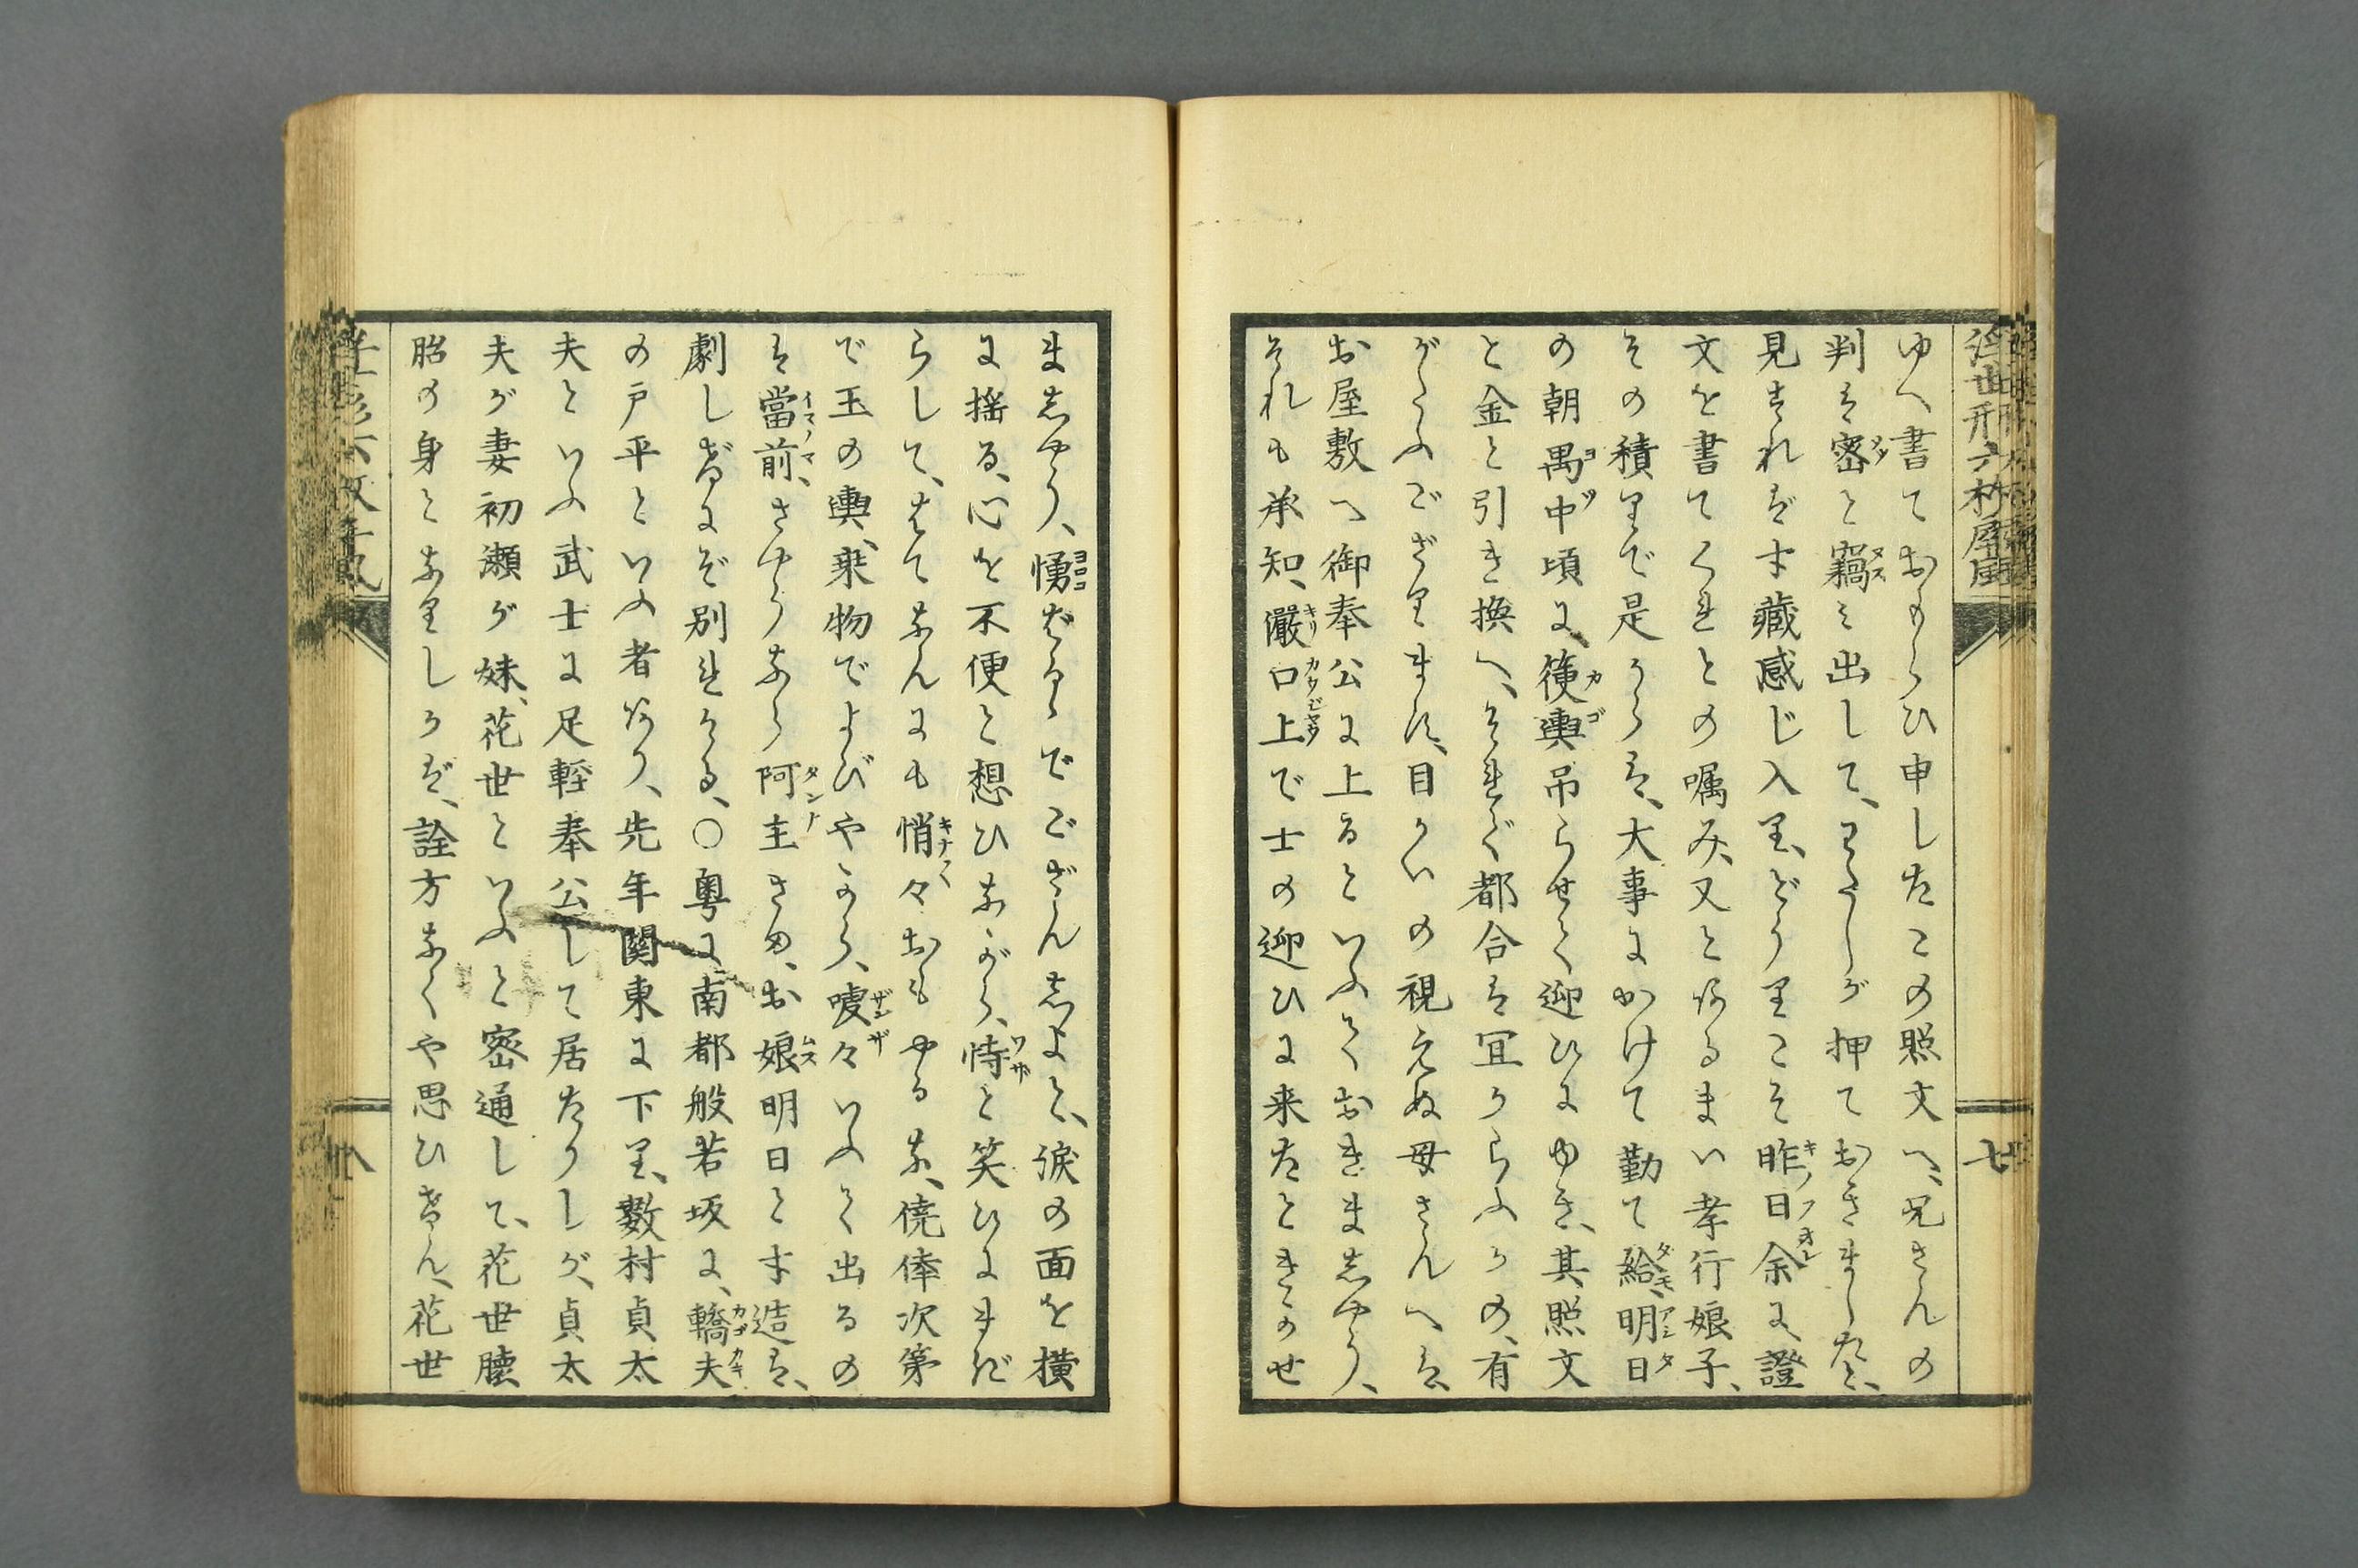 ゆへ書ておもらひ申したこの照文へ、兄さんの
判は密と竊み出して、わたしが押ておきました、と、
見すれば才藏感じ入り、どうりこそ昨日余に證
文を書てくれとの嘱み、又とあるまい孝行娘子、
その積りで是からは、大事にかけて勤て給、明日
の朝禺中頃に、箯輿吊らせて迎ひにゆき、其照文
と金と引き換へ、それで都合は宜からふかの、有
がたふござります、目かいの視えぬ母さんへ、は、
お屋敷へ御奉公に上るといふておきましやう、
それも承知、嚴口上で士の迎ひに来たときかせ
七
ましやう、慂ばるゝでござんしよと、涙の面を横
に揺る、心を不便と想ひながら、恃と笑ひにまぎ
らして、はてなんにも悄々おもやるな、僥倖次第
で玉の輿、乗物でよびやるから、嗄々いふて出るの
は當前、さやうなら阿主さま、お娘明日と才造は、
劇しげにぞ別れける、○粤に南都般若坂に、轎夫
の戸平といふ者あり、先年関東に下り、數村貞太
夫といふ武士に足軽奉公して居たりしが、貞太
夫が妻初瀬が妹、花世といふと密通して、花世朣
胎の身となりしかば、詮方なくや思ひけん、花世
八